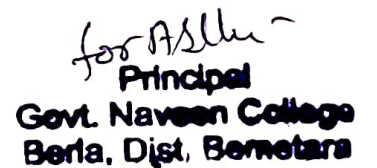 for
Principal
Govt. Naveen College
Berla, Dist. Bemetara